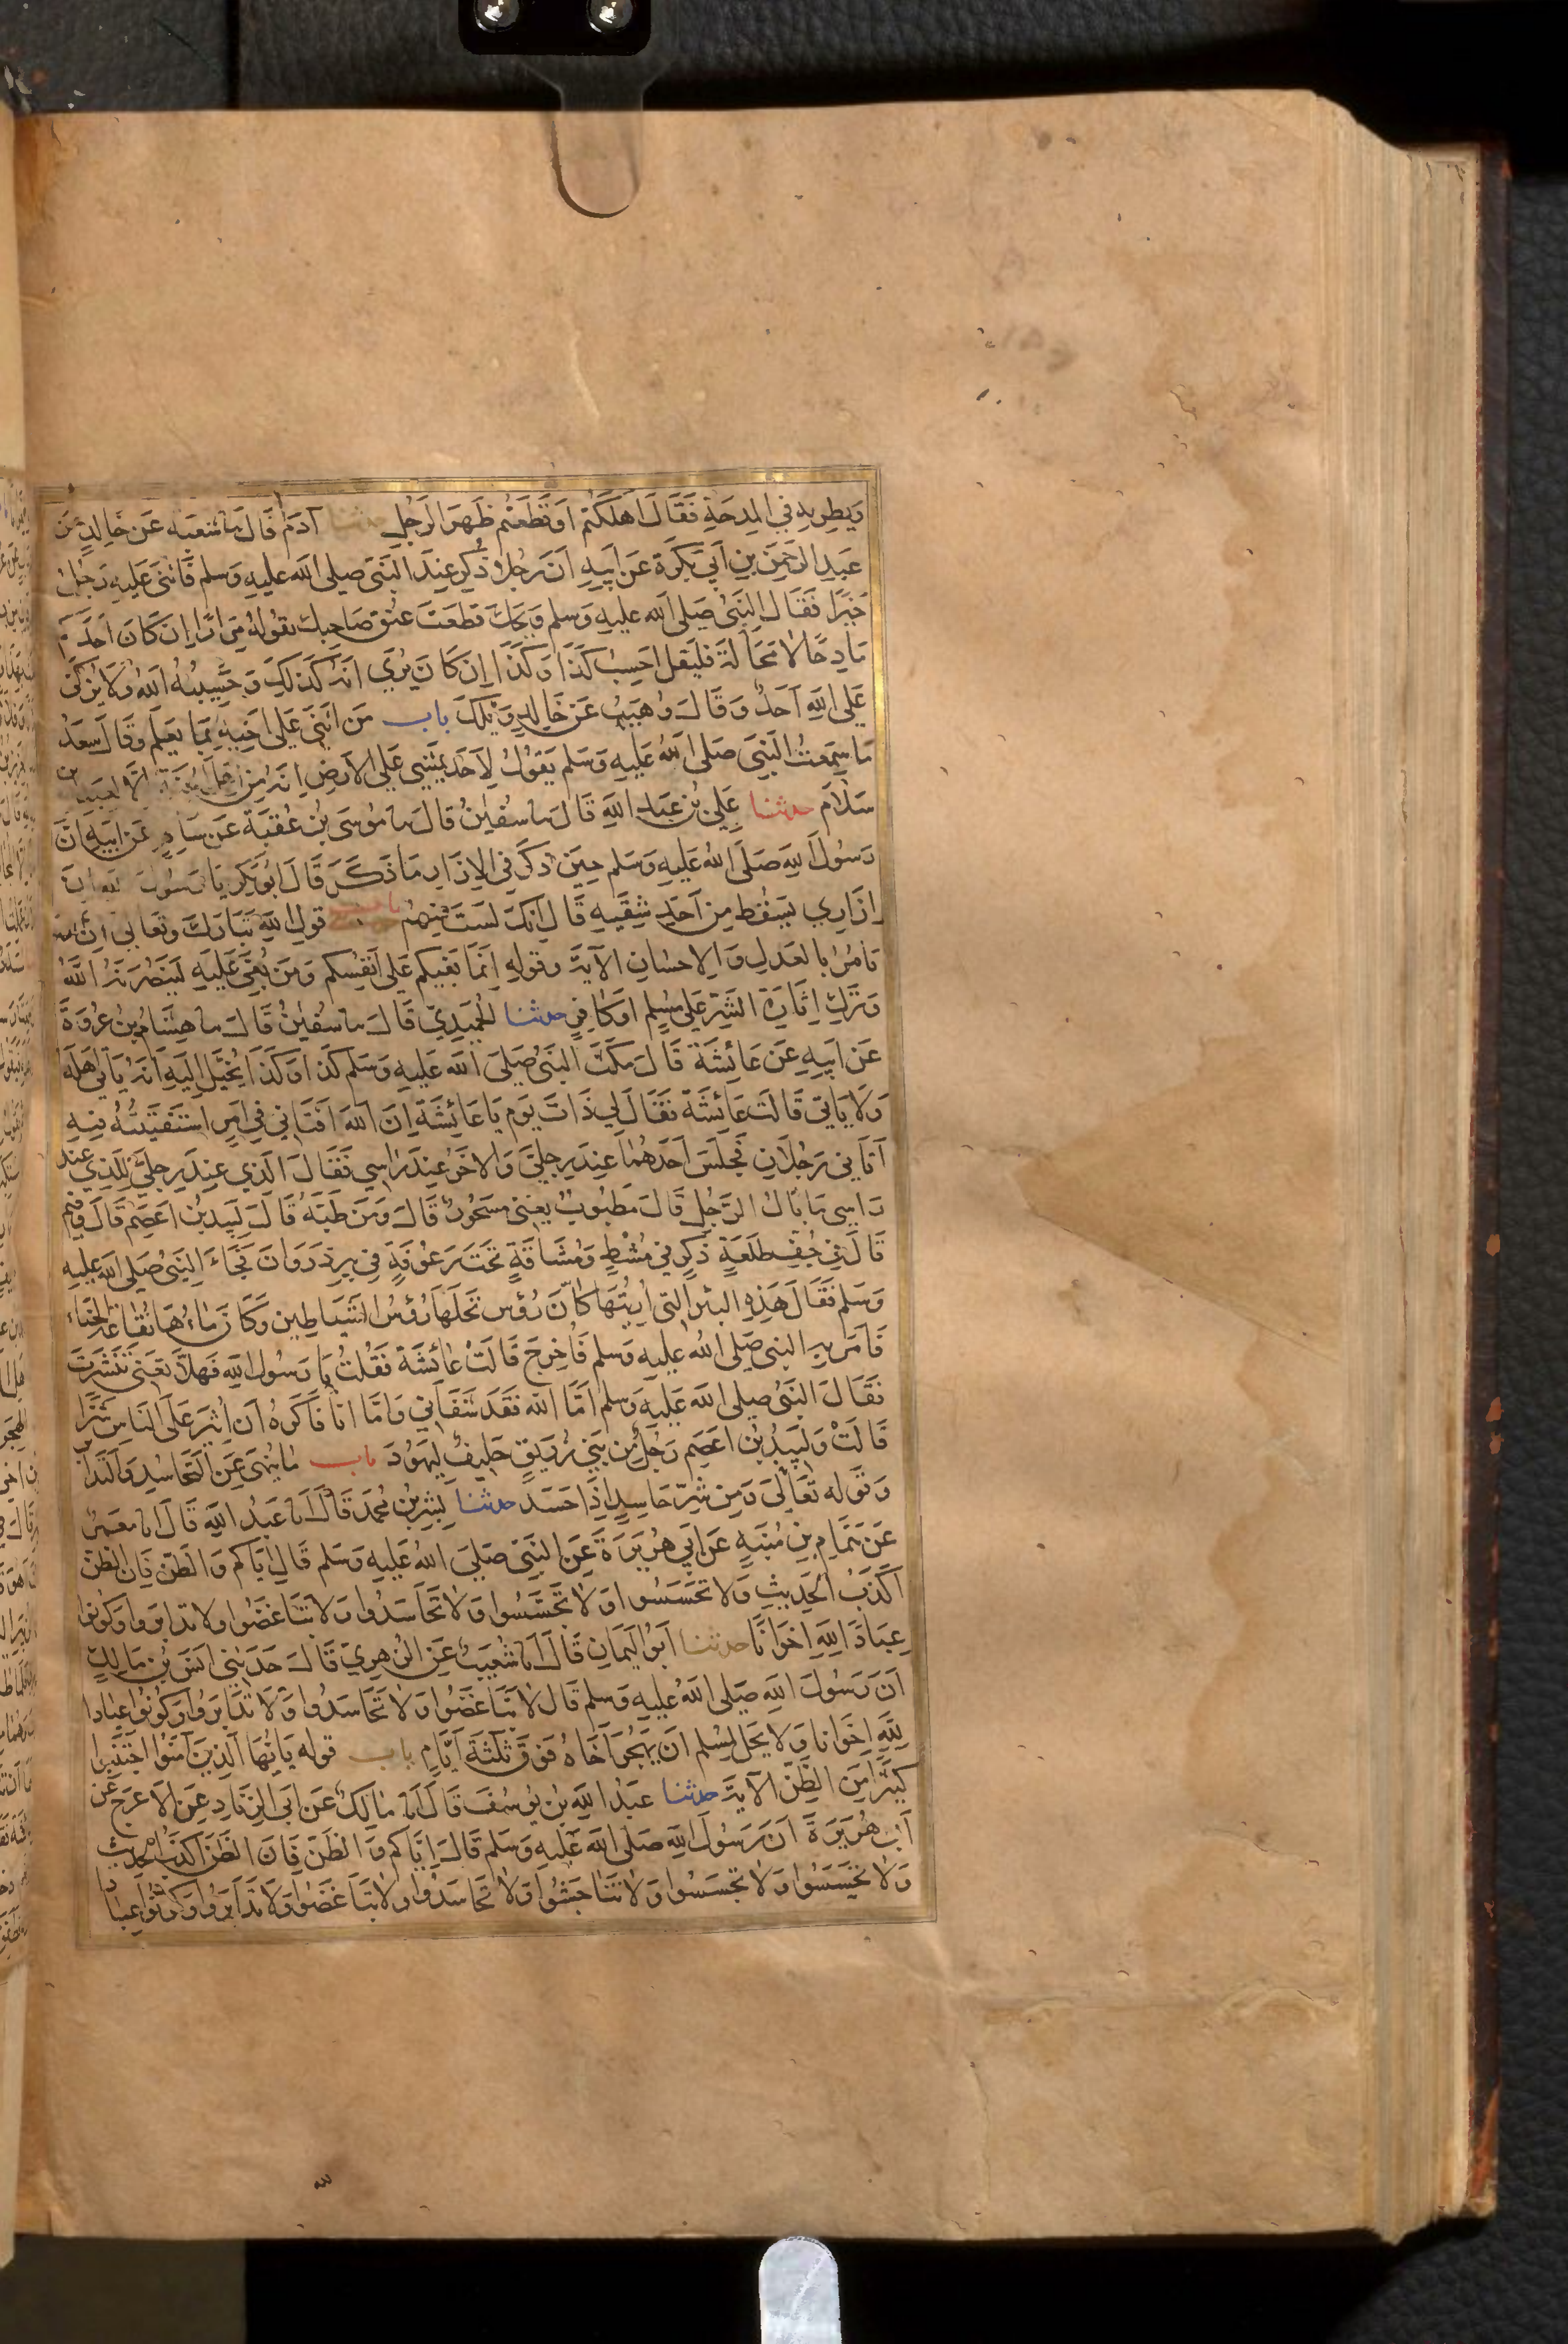 وَيُطرِيهِ في المِدحَةِ فَقَالَ اَهلَكتم اوقَطَعتُم ظَهرَ الرَجُلِ حدثنا آدَمُ قَالَ سا شعبه عَن خَالِدٍ عَن
عَبدِ الرَحمٰنِ بنِ اَبي بَكرَة عَن اَبيهِ اَن رَجُلًا ذُكِرَ عِندَ النَبيّ صلى الله عليه وَسلم فَاثنى عَليهِ رَجُلٌ
خَيرًا فَقَالَ النَبيُ صَلى الله عليهِ وَسلم وَيحَكَ قطعتَ عنُق صَاحِبكَ يقُولهُ مِرَارًا اِن كَانَ احَدكم
مَادِحًا لا محَالَة فَليَقل احسِبُ كَذَا وَكَذَا اِن كَانَ يُرَي انهُ كَذلكَ وَحَسِيبُهُ اللهُ وَلا يُزكى
عَلى اللهِ اَحَدٌ وَقَالَ وُهَيبٌ عَن خَالدٍ وَيْلَكَ باب مَن اَثنَى عَلى اَخِيهِ بمَا يَعلَم وَقَالَ سَعدٌ
مَا سَمِعتُ النَبيَ صَلى اللهُ عَليهِ وَسَلم يَقولُ لِاَحَدٍ يمَشِي عَلى الاَرضِ اِنهُ مِن اَهلِ الجنَّةِ الَّا لعَبدِ الله بن
سَلَام حدثنا عَلِيُ بنُ عَبد اللهِ قَالَ سا سُفيٰنُ قَالَ سا مُوسَى بنُ عُقبَة عَن سَالمٍ عَن ابيهِ اَنَّ
رَسُولَ اللهِ صَلَى اللهُ عَليهِ وَسَلم حِينَ ذكَرَ في الاِزَارِ مَا ذَكَرَ قَالَ ابُو بَكرٍ يَا رَسُولَ اللهِ اِنَ
اِزَارِي يَسقُط مِن اَحَدِ شِقَيهِ قَالَ اِنكَ لَستَ مِنهُم باب قولِ اللهِ تَبَارَكَ وَتَعَالى اِنَ الله
يَامُرُ بِالعَدلِ وَالاِحسَانِ الآيةَ وَقولهِ اِنَمَا بَغيُكم عَلى اَنفِسُكم وَمَن بُغِيَ عَليهِ لَيَنصُرَنهُ اللهُ
وَتَركِ اِثَارَة الشَرِ عَلى مُسلِم اَو كَافِرٍ حدثنا الحُمَيدِيّ قَالَ سا سُفيٰنُ قَالَ سا هِشَامُ بنُ عُروَةَ
عَن اَبيهِ عَن عَائِشَةَ قَالَ مَكَثَ النَبيُ صَلى الله عَليهِ وَسَلم كذَا وَكذَا يُخَيَّل اِليهِ اَنهُ يَاتي اَهلَهُ
وَلَا يَاتي قَالَت عَائشَةُ فَقَالَ لي ذَاتَ يَوم يَا عَائِشَة اِنَ اللهَ اَفتَاني في اَمرٍ استَفتَيتُهُ فيهِ
اَتَاني رَجُلَانِ فَجَلَسَ اَحَدهُمَا عِندَ رِجليَّ وَالاخَرُ عِندَ رَاسِي فَقَالَ الَذي عِندَ رِجليَّ لِلذي عِند
رَاسِي مَا بَالُ الرَجُلِ قَالَ مَطبُوبٌ يَعنى مَسحُورٌ قَالَ وَمَن طَبَّهُ قَالَ لَبِيدُ بن اعصَم قَالَ وَفِيم
قَالَ في جُفِ طَلعَةٍ ذَكرٍ في مُشطٍ وَمُشَاقَةٍ تحَتَ رَعُوفَةٍ في بيرِ ذروَانَ فَجَاءَ النبيُ صَلى الله عليهِ
وَسَلم فَقَالَ هَذِهِ البئرُ التي اُرِيتُهَا كَانَّ رُؤسَ نَخلِهَا رُؤسُ الشَيَاطِين وَكَانَ مَاءَهَا نُقَاعَة الحنَاءِ
فَاَمَر بِهِ النبي صَلى الله عليهِ وَسَلم فَاُخرِجَ قَالَت عَائشَة فَقُلتُ يَا رَسُول اللهِ فَهلَّا تَعنى تَنَشَّرتَ
فقَالَ النَبيُ صلى الله عَليهِ وَسَلم اَمَّا اللهُ فَقَد شَفَاني وَامَّا انَا فَاَكرَهُ اَن اُثيرَ عَلَى النَاسِ شَرًّا
قَالَت وَلَبِيدُ بن اعصَم رَجُلٌ مِن بَني زُرَيقٍ حَليفٌ لِيَهُودَ باب مَا يُنهى عَنِ التَحَاسُدِ وَالتَدَابر
وَقَوله تَعَالَى وَمِن شَرِّ حَاسِدٍ اِذَا حَسَدَ حدثنا بِشر بنُ مُحمَد قَالَ انا عَبدُ اللهِ قَالَ انا مَعمَرٌ
عَن هَمَّامِ بنِ مُنَبهٍ عَن ابي هُرَيرَةَ عَنِ النَبيّ صَليَ اللهُ عَليهِ وَسَلم قَالَ ايَّاكم وَالظَنّ فَاِن الظنّ
اَكذَبُ الحَديثِ وَلَا تحسَسُوا وَلَا تَجسَّسُوا وَلَا تحَاسَدُوا وَلَا تبَاغَضُوا وَلا تدابَروا وَكونوا
عِبَادَ اللهِ اِخوَانًا حدثنا اَبُو اليَمَانِ قَالَ انا شُعَيبٌ عَنِ الزهرِيّ قَالَ حَدثَني انَسُ بنُ مَالِكٍ
اَنَ رَسُولَ اللهِ صَلى اللهُ عَليهِ وَسلم قَالَ لا تَبَاغَضُوا وَلَا تَحَاسَدُوا وَلَا تدَابَرُوا وَكونُوا عِبَادَا
للهِ اِخوَانا وَلا يَحل لمِسُلم اَن يَهجُرَ اَخَاهُ فَوقَ ثَلثَةَ اَيَّامٍ باب قوله يَا ايُّهَا الذينَ آمنُوا اجتَنبُوا
كَثيرًا مِنَ الظَنِّ الآيةَ حدثنا عَبدُ اللهِ بن يُوسُفَ قَالَ انا مَالكٌ عَن ابي الزنَادِ عَنِ الاَعرَج عَن
اَبي هُرَيرَةَ اَنَ رَسُولَ اللهِ صَلى الله عَليهِ وَسَلم قَالَ اِيَّاكم وَالظَنَّ فَاِنَ الظَنَّ اَكذَبُ الحَديثِ
وَلا تَحَسَسُوا وَلا تجَسَسُوا وَلا تَنَاجَشُوا وَلا تَحَاسَدُوا وَلا تبَاغضوُا وَلَا تَدَابَرُوا وَكونوُا عِبَادَ